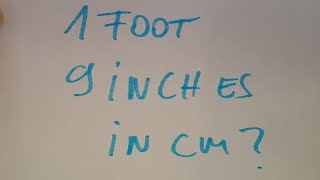 1 FOOT
9 INCHES
IN CM?